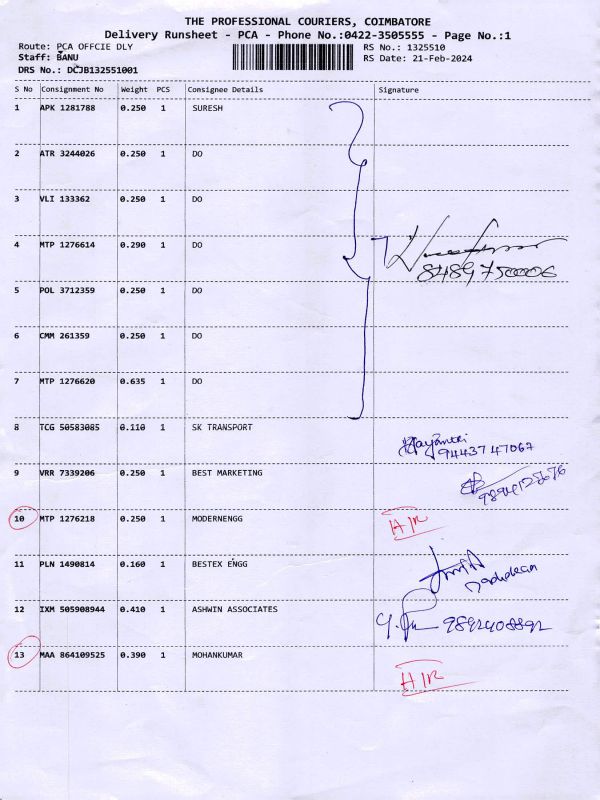 THE PROFESSIONAL COURIERS, COIMBATORE
Delivery Runsheet - PCA - Phone No.:0422-3505555 - Page No.:1
Route: PCA OFFCIE DLY RS No.: 1325510
Staff: BANU RS Date: 21-Feb-2024
DRS No.: DCJB132551001
S No Consignment No Weight PCS Consignee Details Signature
1 APK 1281788 0.250 1 SURESH
2 ATR 3244026 0.250 1 DO
3 VLI 133362 0.250 1 DO
4 MTP 1276614 0.290 1 DO
8489750006
5 POL 3712359 0.250 1 DO
6 CMM 261359 0.250 1 DO
7 MTP 1276620 0.635 1 DO
8 TCG 50583085 0.110 1 SK TRANSPORT
9443747067
9 VRR 7339206 0.250 1 BEST MARKETING
10 MTP 1276218 0.250 1 MODERNENGG H/R
11 PLN 1490814 0.160 1 BESTEX ENGG
12 IXM 505908944 0.410 1 ASHWIN ASSOCIATES
13 MAA 864109525 0.390 1 MOHANKUMAR H/R